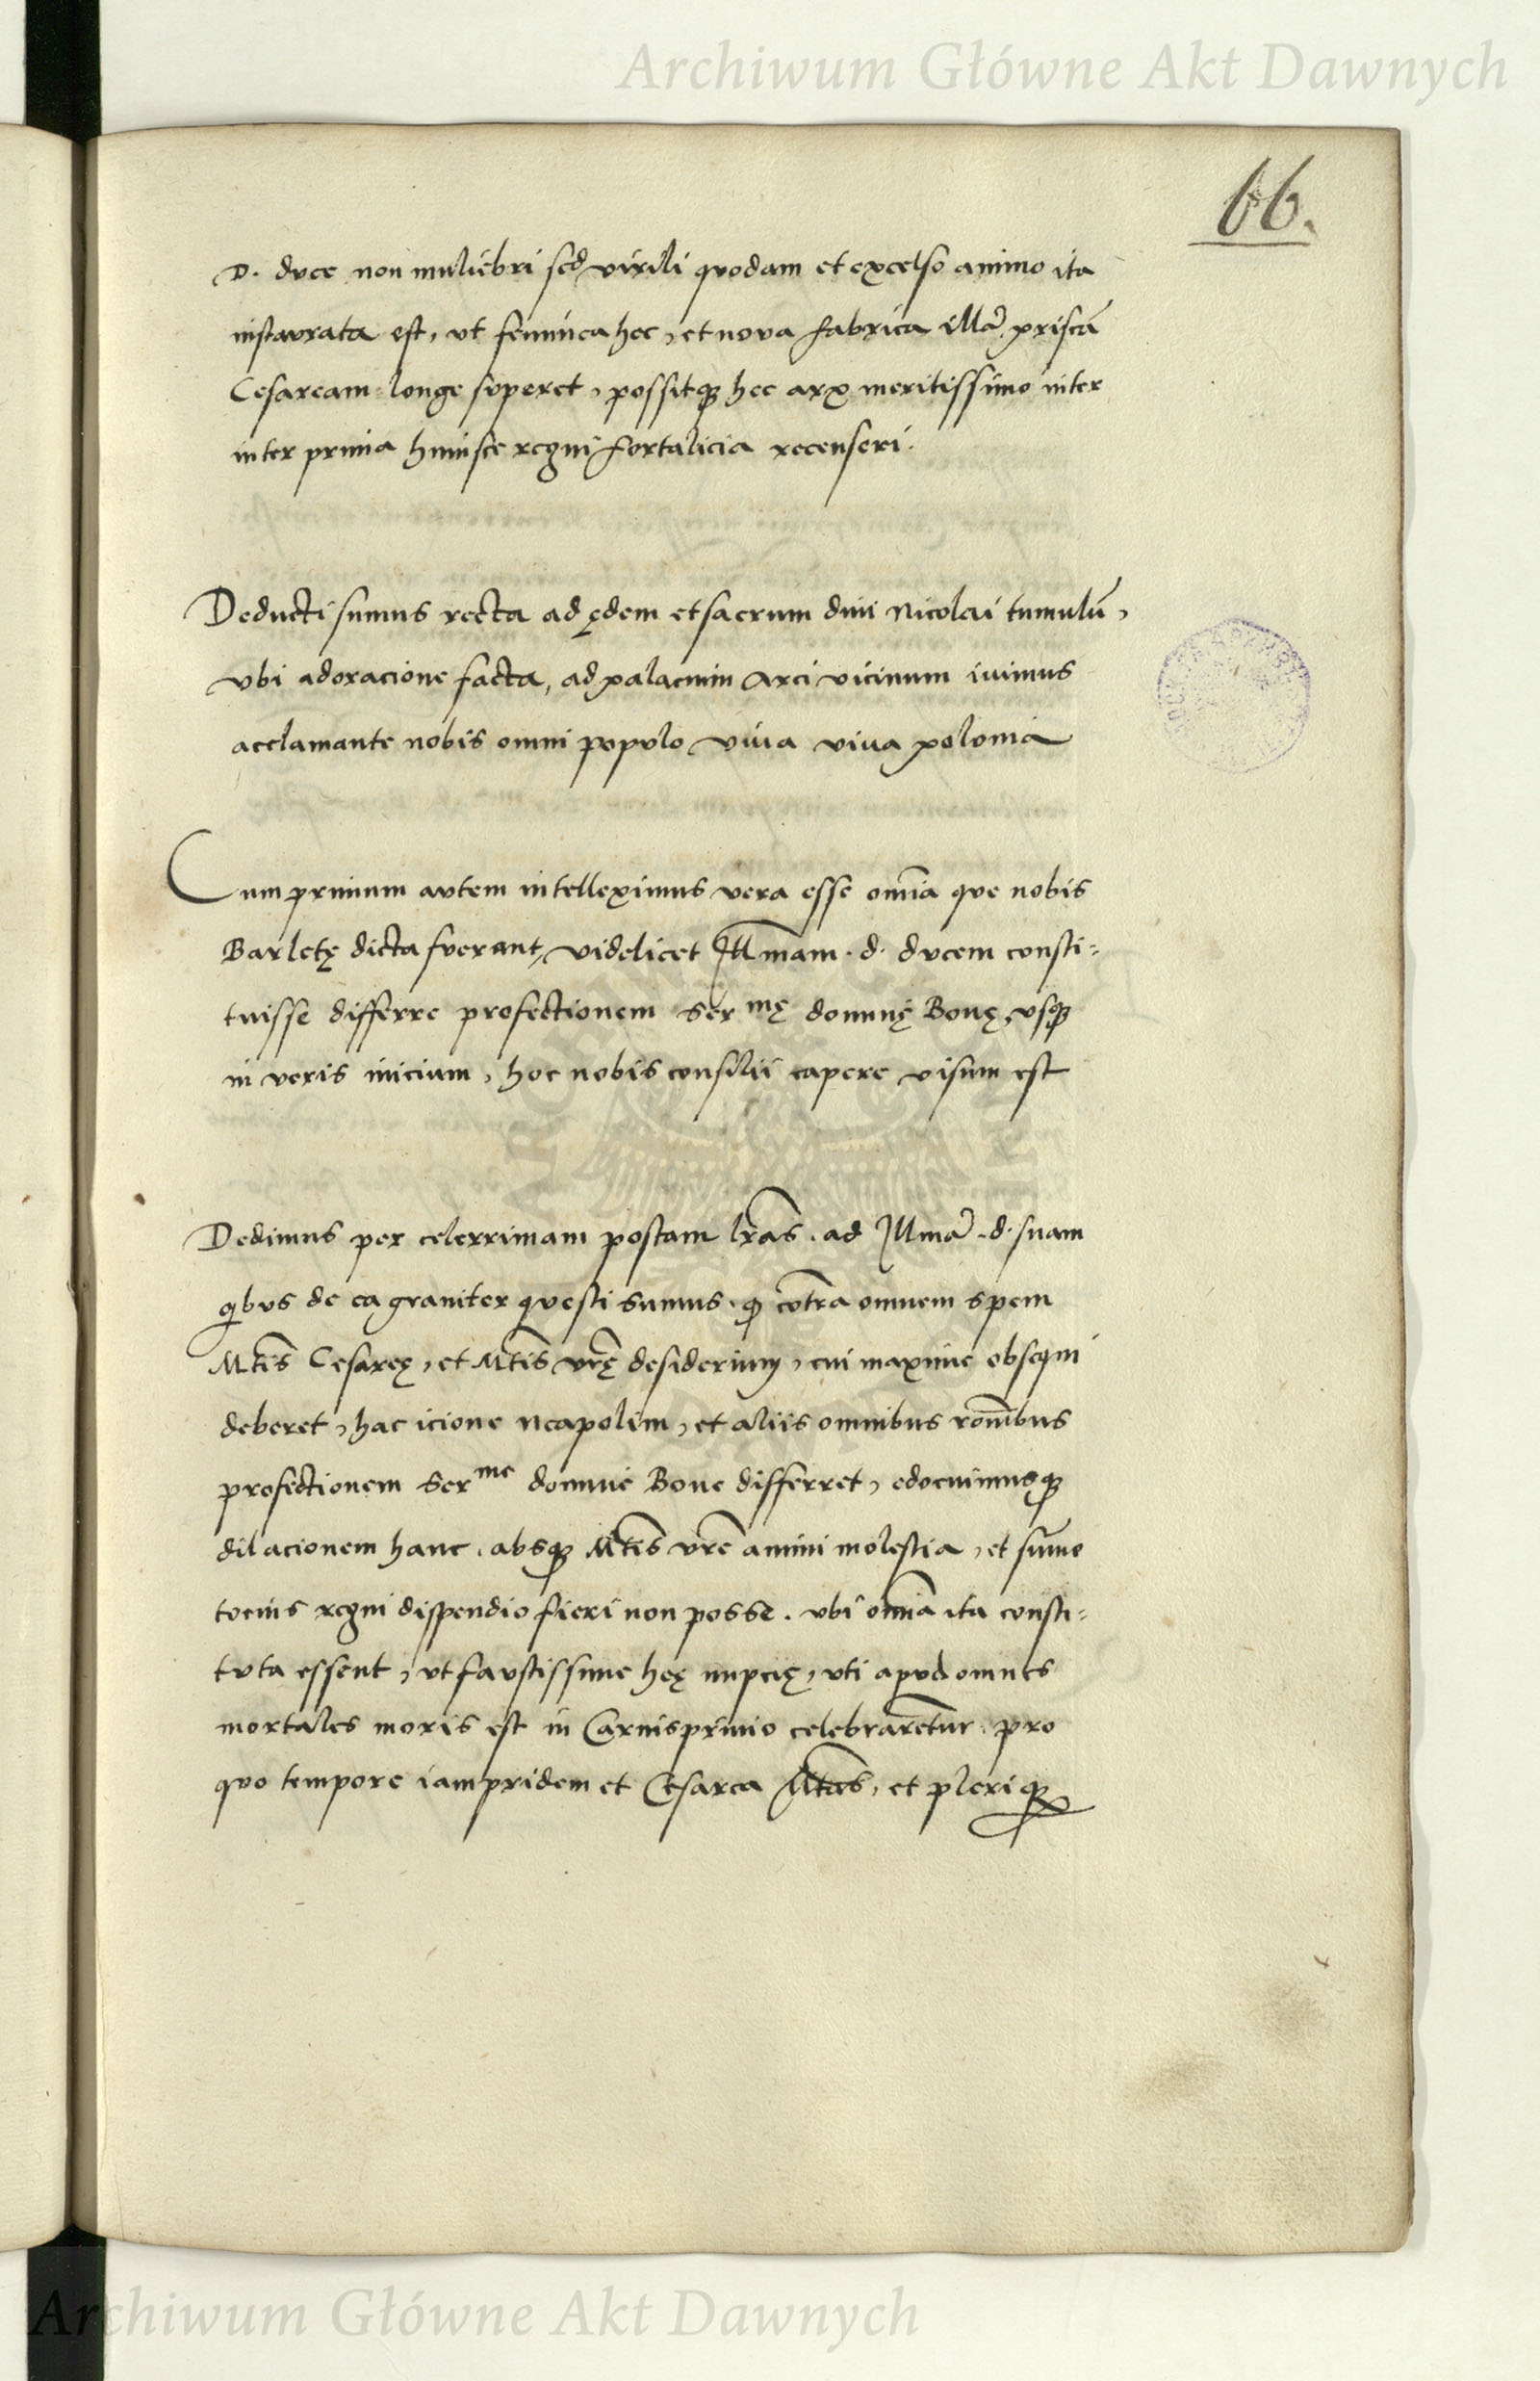 Archiwum Główne Akt Dawnych
66.
D. duce non muliebri sed virili quodam et excelso animo ita
instaurata est, ut feminea hec, et nova fabrica illā priscā
Cesaream longe superet, possitqꝫ hec arx meritissimo inter
inter prima huiusce regni fortalicia recenseri.
Deducti sumus recta ad ędem et sacrum divi Nicolai tumulū,
vbi adoracione facta, ad palacium Arci vicinum ivimus
acclamante nobis omni populo viva viva polonia
Cum primum autem intelleximus vera esse omīa que nobis
Barletę dicta fuerant, videlicet Illmam. d. ducem consti=
tuisse differre profectionem Sermę domnę Bonę, usqꝫ
in veris inicium, hoc nobis consilii capere visum est
Dedimus per celerrimam postam lrās. ad Illmā. d. suam
qibus de ea graviter questi sumus. ꝙ cōtra omnem spem
Mtis Cesareę, et Mtis vrę desiderium, cui maxime obsequi
deberet, hac icione Neapolim, et aliis omnibus rōnibus
profectionem Serme domne Bone differret, edocuimusqꝫ
dilacionem hanc. absqꝫ Mtis vre animi molestia, et sūmo
tocius regni dispendio fieri non posse. vbi omīa ita consti=
tuta essent, ut faustissime heę nupcię, uti apud omnes
mortales moris est in Carnisprivio celebrarētur. pro
quo tempore iampridem et Cesarea Mtas, et pleriqꝫ
Archiwum Główne Akt Dawnych